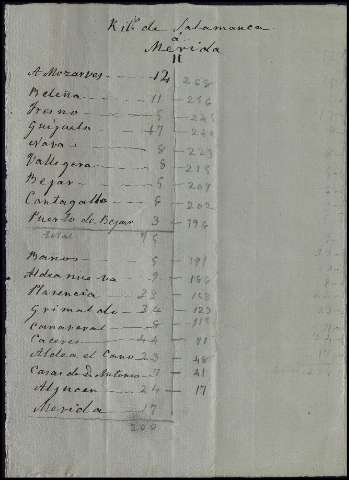 Kil.s de Salamanca
á
Merida
A Mozarves 12 268
Beleña 11 256
Fresno 5 245
Guijuelo 17 240
Nava 8 223
Vallegera 8 215
Bejar 5 207
Cantagallo 6 202
Puerto de Bejar 3 196
total 75
Banos
Aldeanueva 9 186
Plasencia 28 158
Grimaldo 34 123
Canaveral 8 115
Caceres 44 81
Aldea el Cano 23 48
Casas de D Antonio 7 41
Aljucen 24 17
Merida 17